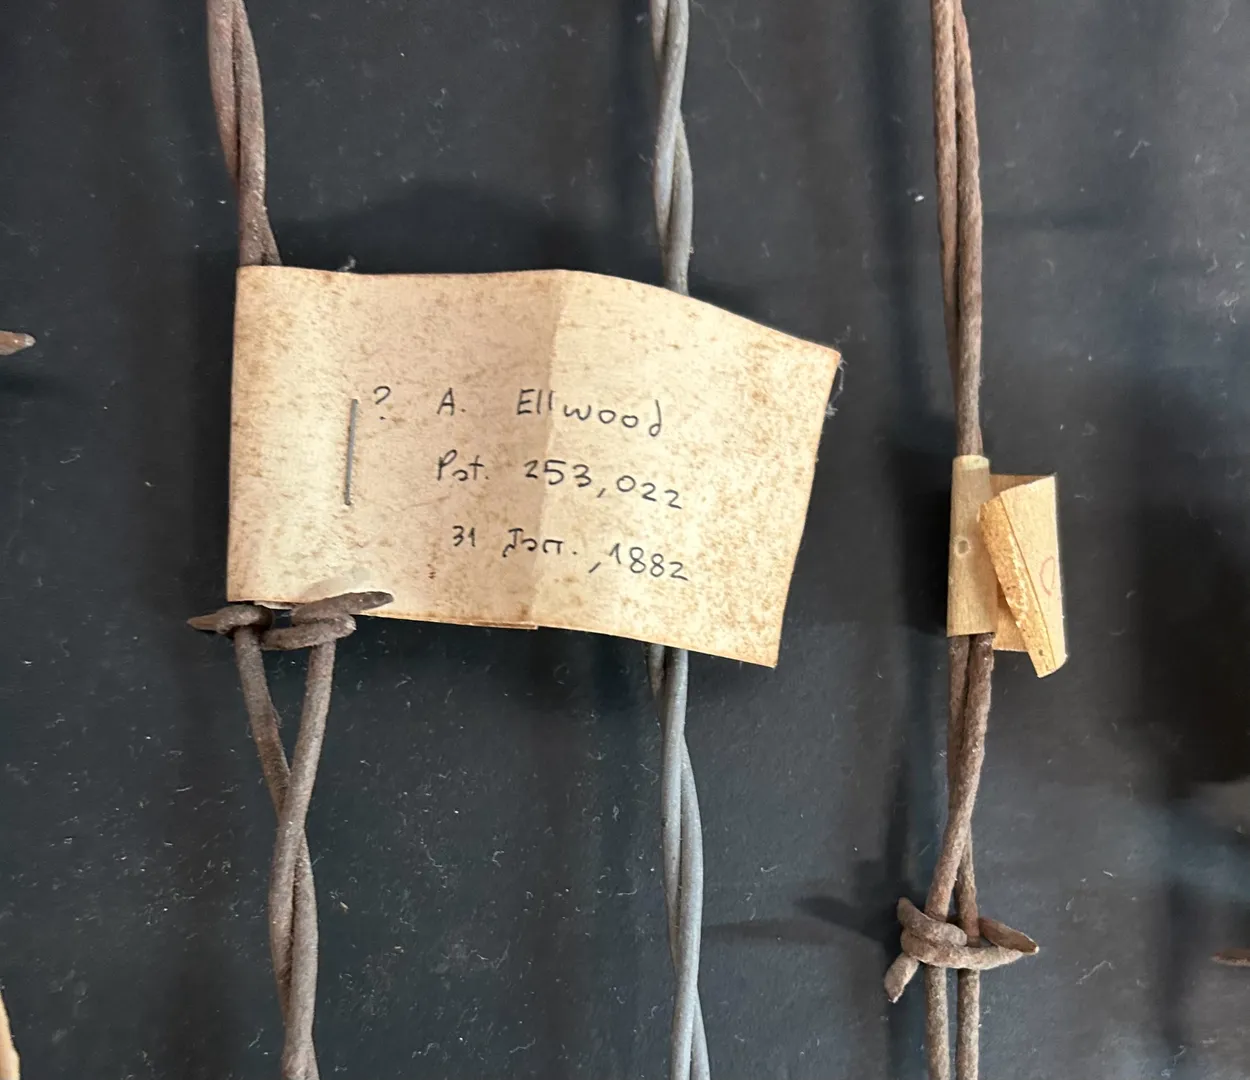 ? A. Ellwood
Pat. 253,022
31 Jan., 1882